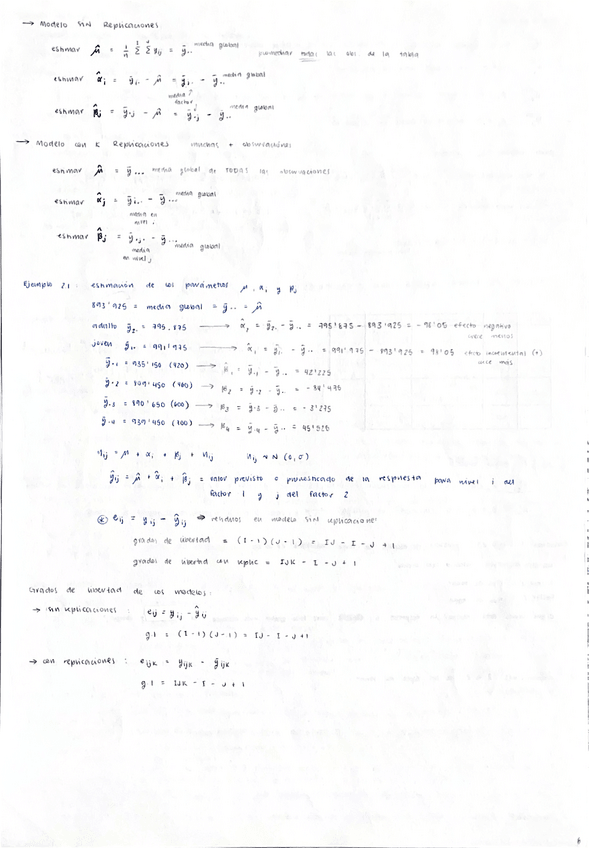 → Modelo SIN Replicaciones
estimar μ̂ = 1/n Σ Σ yij = ȳ.. media global promediar todas las obs. de la tabla
estimar α̂i = ȳi. - μ̂ = ȳi. - ȳ.. media global
media factor
estimar β̂j = ȳ.j - μ̂ = ȳ.j - ȳ.. media global
→ Modelo con K Replicaciones muchas + observaciones
estimar μ̂ = ȳ... media global de TODAS las observaciones
estimar α̂j = ȳi.. - ȳ... media global
media en nivel i
estimar β̂j = ȳ.j. - ȳ... media global
media en nivel j
Ejemplo 2.1: estimación de los parámetros μ, αi y βj
893'925 = media global = ȳ.. = μ̂
adulto ȳ2. = 795.875 → = ȳ2. - ȳ.. = 795'875 - 893'925 = - 98'05 efecto negativo
joven ȳ1. = 991'975 → α̂1 = ȳ1. - ȳ.. = 991'975 - 893'925 = 98'05 efecto incremental (+)
ȳ.1 = 935'150 (420) → β̂1 = ȳ.1 - ȳ.. = 42'225
ȳ.2 = 809'450 → β̂2 = ȳ.2 - ȳ.. = - 84'475
ȳ.3 = 890'650 (600) → β̂3 = ȳ.3 - ȳ.. = - 3'275
ȳ.4 = 939'450 → β̂4 = ȳ.4 - ȳ.. =
yij = μ + αi + βj + nij nij ~ N (0,σ)
ŷij = μ̂ + α̂i + β̂j = valor previsto o pronosticado de la respuesta para nivel i del
factor 1 y j del factor 2
eij = yij - ŷij ⇒ residuos en modelo SIN replicaciones
grados de libertad = (I-1)(J-1) = IJ - I - J + 1
grados de libertad con replic = IJK - I - J + 1
Grados de libertad de los modelos:
→ sin replicaciones : eij = yij - ŷij
g.l = (I-1)(J-1) = IJ - I - J + 1
→ con replicaciones : eijk = yijk - ŷijk
g.l = IJK - I - J + 1